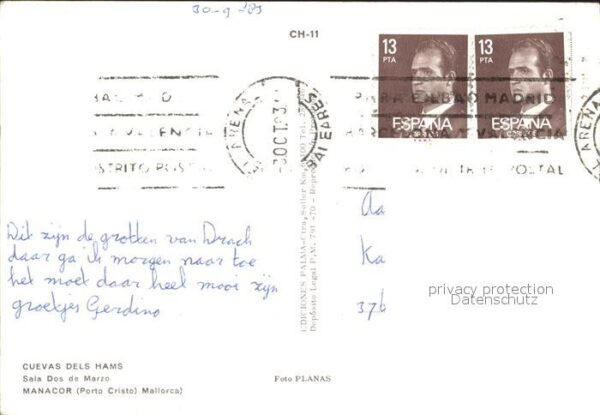 30-9-'83
CH-11
13
PTA
ESPAÑA
CORREOS
13
PTA
ESPAÑA
CORREOS
EL ARENAL
3 OCT 83
BALEARES
PARA BILBAO MADRID
VALENCIA
DISTRITO POSTAL
EL ARENAL
Dit zijn de grotten van Drach
daar ga ik morgen naar toe
het moet daar heel mooi zijn
groetjes Gerdino
EDICIONES PALMA - Ctra. Soller Km.
Depósito Legal P.M. 791-70 -
Aa
Ka
37b
privacy protection
Datenschutz
CUEVAS DELS HAMS
Sala Dos de Marzo
MANACOR (Porto Cristo) Mallorca)
Foto PLANAS